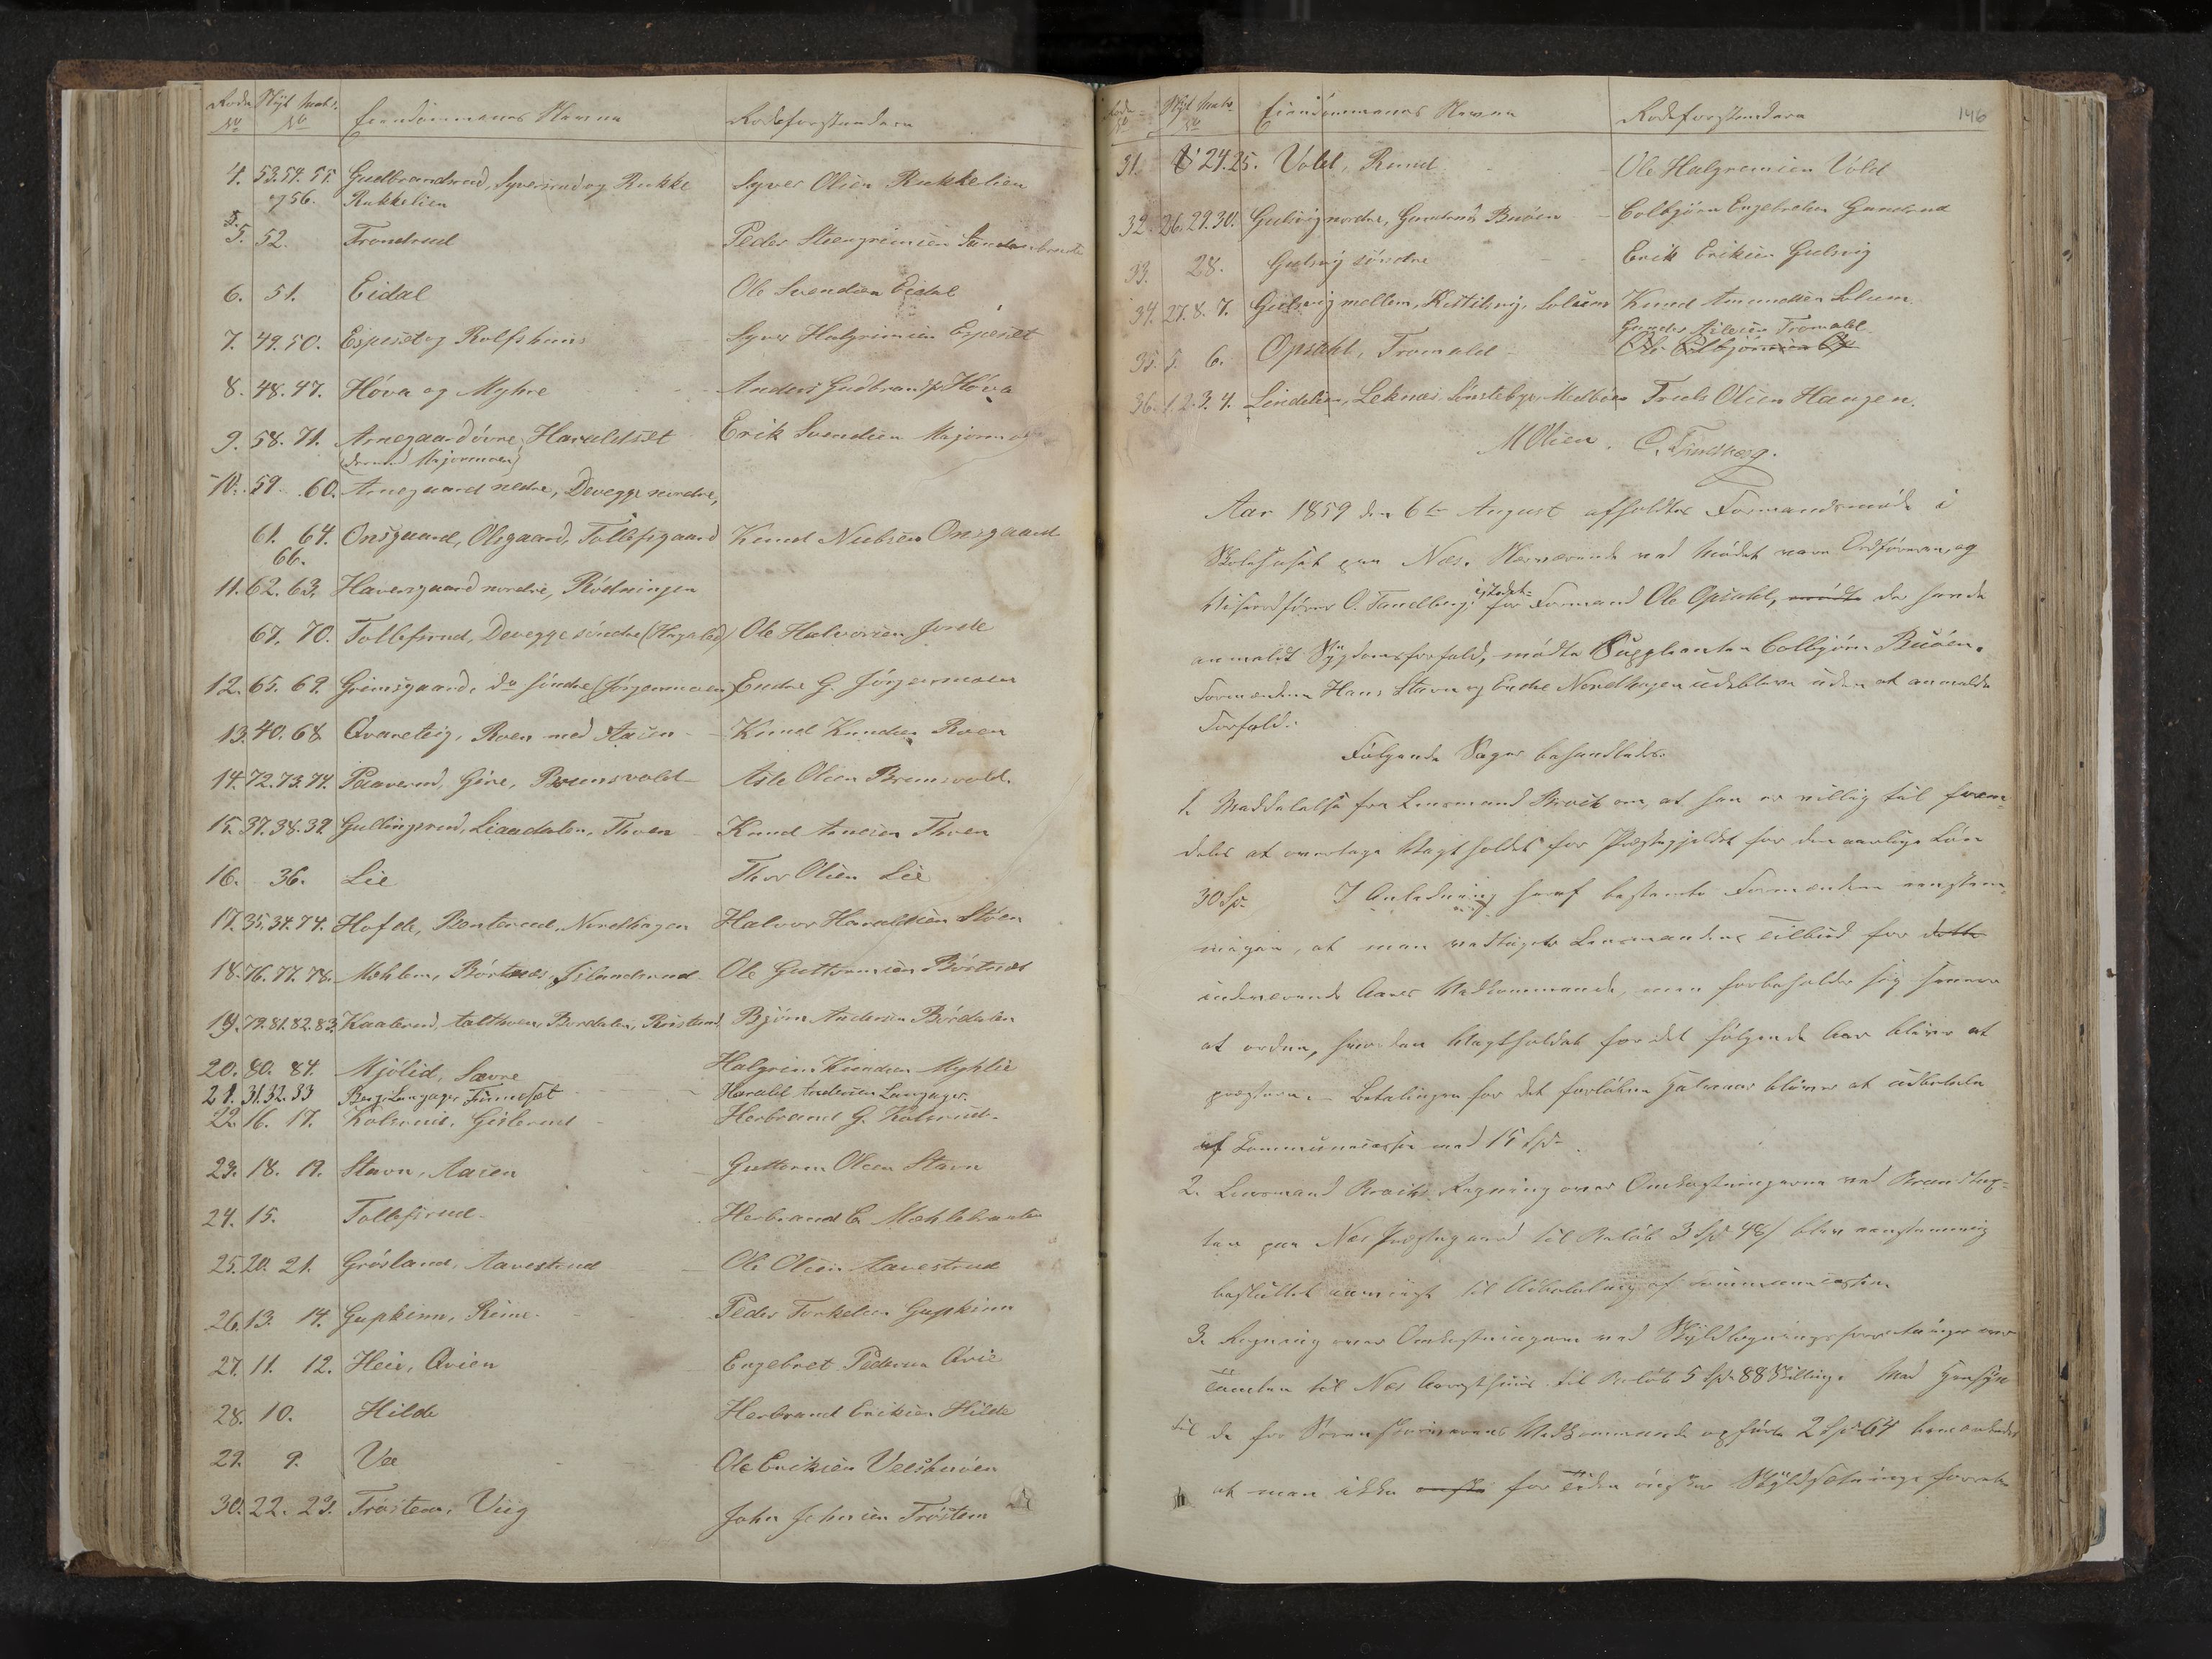 Rode Nyt Matr.
No No Eiendommenes Navne Rodeforstandere
4. 53.54.55. Gudbrandsrud, Syversrud og Rukke Syver Olsen Rukkelien
og 56. Rukkelien
5. 52. Trondrud Peder Steengrimsen
6. 51. Eidal Ole Svendsen Eidal
7. 49.50. Espeset og Rolfshuus Syver Halgrimsen Espeset
8. 48.47. Höva og Myhre Anders Gudbrands. Höva
9. 58. 71. Arnegaard övre, Haraldset Erik Svendsen Majormoe
Majormoen)
10. 59. 60. Arnegaard nedre, Devegge nordre,
61. 64. Onsgaard, Olsgaard, Tollefsgaard Knud Nielsen Onsgaard
66.
11. 62. 63. Haversgaard nordre, Rödningen
67. 70. Tollefsrud, Devegge söndre Ole Halvorsen Jorde
12. 65. 69. Grimsgaard, do söndre (Jörgenmoen) Endre G. Jörgenmoen
13. 40. 68 Qvareteig, Roen med Aasen Knud Knudsen Roen
14. 72.73.74. Beaverud, Göre, Bromsvold Asle Olsen Bromsvold.
15. 37.38.39. Gullingsrud, Liaadalen, Thoen Knud Arnesen Thoen
16. 36. Lie Thor Olsen Lie
17. 35.34.74. Hofde, Bonterud, Nordhagen Halvor Haraldsen Stöen
18. 76.77.78. Mehlum, Börtnes, Jilandsrud Ole Guttormsen Börtnes
19. 79.81.82.83. Kaalerud, Aalthoen, Bordalen, Roisland Björn Andersen Bördalen
20. 80. 84. Mjölid, Sævre Halgrim Knudsen Myhlie
21. 31.32.33 Berg, Langager, Finneset Harald Andersen Langager.
22. 16. 17. Kolsrud, Gislerud Herbrand G. Kolsrud.
23. 18. 19. Stavn, Aasen Guttorm Olsen Stavn
24. 15. Tollefsrud Herbrand E.
25. 20. 21. Grösland, Aavestrud Ole Olsen Aavestrud
26. 13. 14. Gupkinn, Reine Peder Torkelsen Gupkinn
27. 11. 12. Heie, Qvien Engebret Pedersen Qvie
28. 10. Hilde Herbrand Eriksen Hilde
29. 9. Vee Ole Eriksen
30. 22. 23. Tröstem, Viig John Johnsen Tröstem
146
Rode Nyt Matr.
No No Eiendommenes Navne Rodeforstandere
31. 24.25. Vold, Rund Ole Halgrimsen Vold
32. 26.29.30. Gulsvig nordre, Gandrud, Buöen Colbjörn Engebretsen Gandrud
33. 28. Gulsvig söndre Erik Eriksen Gulsvig
34. 27.8.7. Gulsvig mellem, Kittilsvig, Solum Knud Amundsen Solum
35. 5. 6. Opsahl, Tromald Gunder Tromald
36. 1.2.3.4. Lindelien, Leknæs, Sönsteby, Medböen Truls Olsen Haugen.
M Olsen. O. Tandberg.
Aar 1859 den 6te August afholdtes Formandsmöde i
Skolehuset paa Næs. Nærværende ved Mödet vare Ordföreren, og
Viceordförer O. Tandberg. istedet for Formand Ole Opsahl, mödte der havde
anmeldt Sygdomsforfald, mödte Suppleanten Colbjörn Buöen.
Formændene Hans Stavn og Endre Nordhagen udebleve uden at anmelde
Forfald.
Fölgende Sager behandledes:
1. Meddelelse fra Lensmand Broch om at han er villig til frem-
deles at overtage Vagtholdet for Præstegjeldet for den aarlige Lön
30 Spd. I Anledning heraf bestemte Formændene eenstem-
migen, at man vedtager Lensmandens Tilbud for dette
indeværende Aars Vedkommende, men forbeholder sig senere
at ordne, hvordan Vagtholdet for det fölgende Aar bliver at
præstere. Betalingen for det forlöbne Halvaar bliver at udbetale
af Communecassen med 15 Spd.
2. Lensmand Brochs Regning over Omkostningerne ved
paa Næs Præstegaard til Belöb 3 Spd 48 ß blev eenstemmig
besluttet anviist til Udbetaling af Communecassen
3. Regning over Omkostningerne ved Skyldlægningsforretninger over
Tomten til Næs Arresthuus til Belöb 5 Spd. 88 Skilling. Med Hensyn
til de for Sorenskriverens Vedkommende opförte 2 Spd 64 bemærkedes
at man ikke önske for Tiden önsker Skyldsætningsforret-